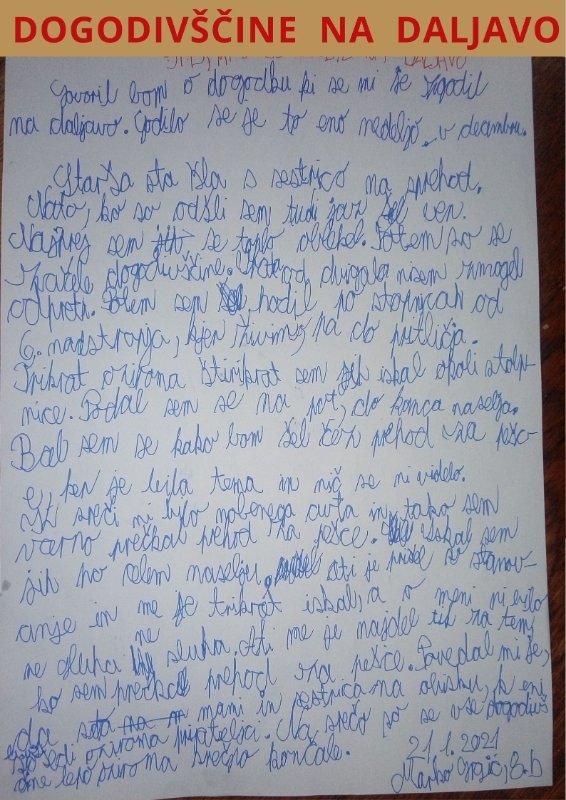 DOGODIVŠČINE NA DALJAVO
DALJAVO
Govoril bom o dogodku ki se mi je zgodil
na daljavo. Godilo se je to eno nedeljo, v decembru.
Starša sta šla s sestrico na sprehod.
Nato, ko so odšli sem tudi jaz šel ven.
Najprej sem se toplo oblekel. Potem so se
začele dogodivščine. Vrat od dvigala nisem zmogel
odpreti. Potem sem hodil po stopnicah od
6. nadstropja, kjer živimo, pa do pritličja.
Trikrat oziroma štirikrat sem jih iskal okoli stolp-
nice. Podal sem se na pot, do konca naselja.
Bal sem se kako bom šel čez prehod za pešc-
e, ker je bila tema in nič se ni videlo.
K sreči ni bilo nobenega avta in tako sem
varno prečkal prehod za pešce. Iskal sem
jih po celem naselju, ati je prišel v stanov-
anje in me je trikrat iskal, a o meni ni bilo
ne duha ne sluha. Ati me je najdel tik za tem,
ko sem prečkal prehod za pešce. Povedal mi je,
da sta mami in sestrica na obisku, k eni
sosedi oziroma prijatelici. Na srečo so se vse dogodivš
čine lepo oziroma srečno končale.
21.1.2021
Marko Grojić, 3.b